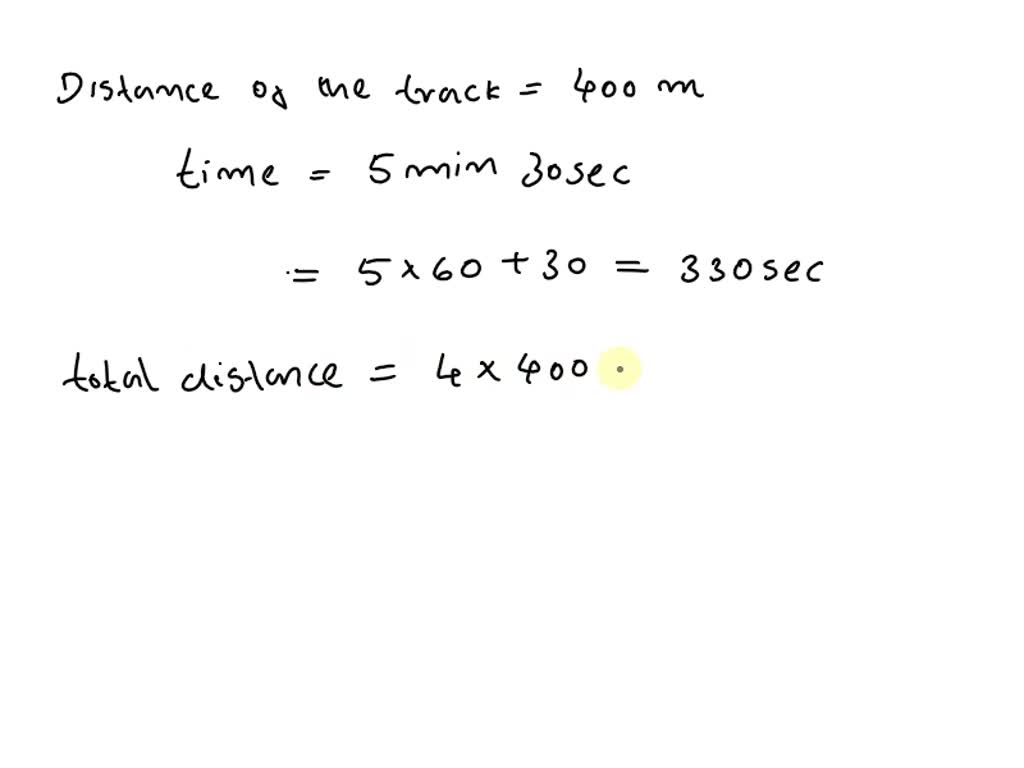 Distance of the track = 400 m
time = 5 min 30sec
= 5 × 60 + 30 = 330 sec
total distance = 4 × 400